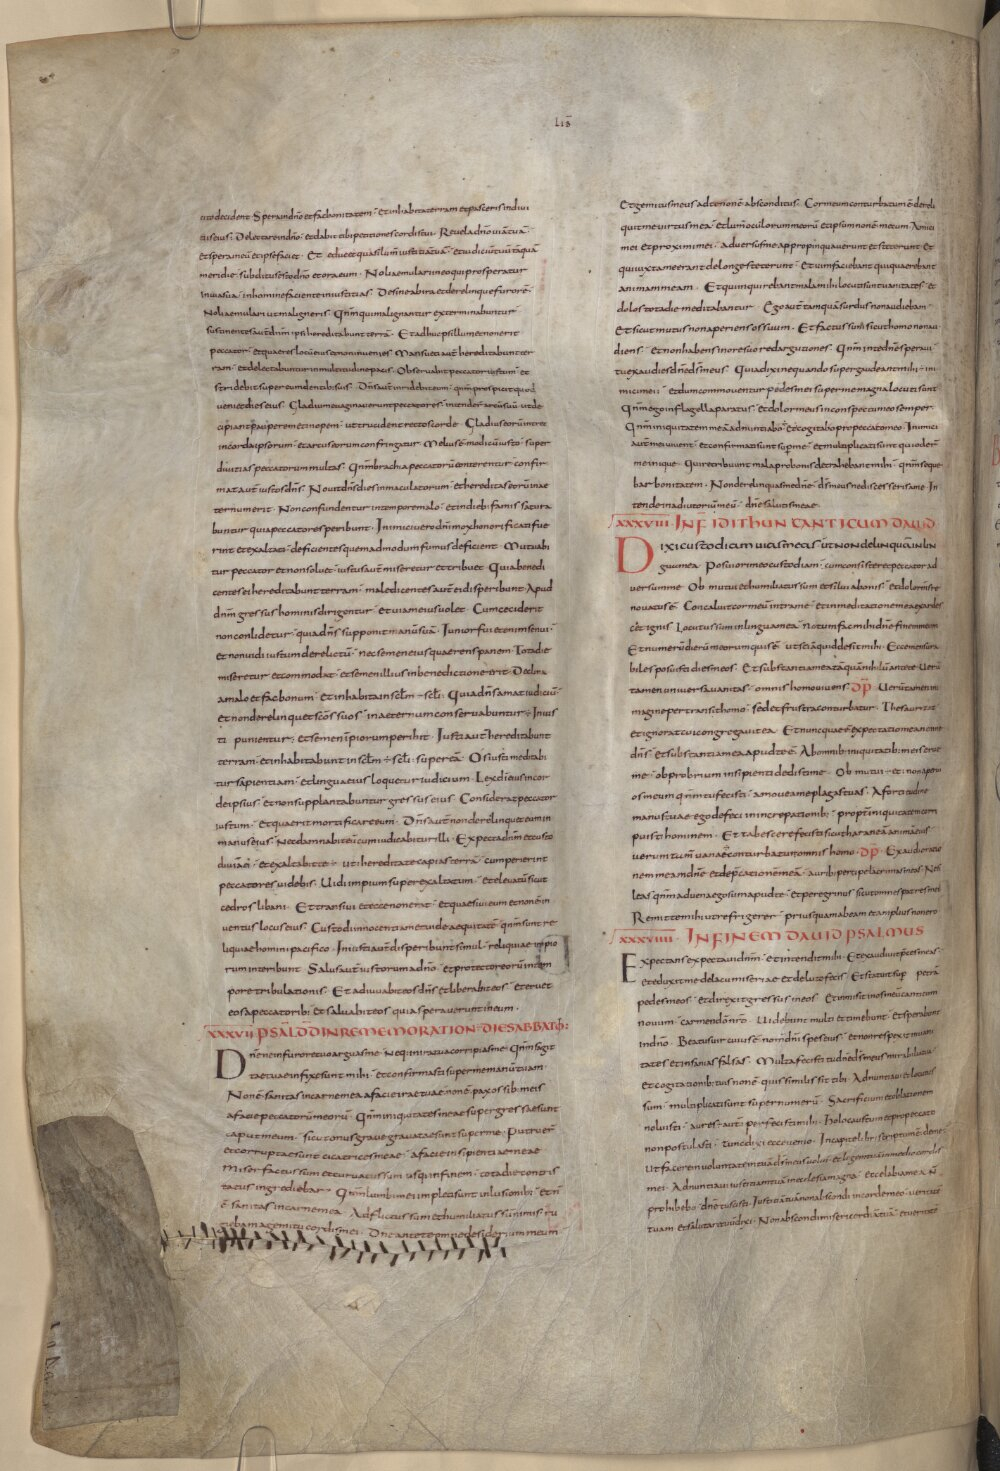 LIB
cito decident Spera in dn̄o et fac bonitatem · Et inhabita terram et pasceris in divi
tiis eius · Delectare in dn̄o · et dabit tibi petitiones cordis tui · Revela dn̄o viā tuā ·
et spera in eū et ipse faciet · Et educet quasi lumē iustitiā tuā · et iudiciū tuū tāquā
meridie · subditus esto dn̄o et ora eum · Noli aemulari in eo qui prosperatur
in via sua · in homine faciente iniustitias · Desine ab ira et derelinque furorē ·
Noli aemulari ut maligneris · Qnm̄ qui malignantur exterminabuntur
sustinentes aut̄ dn̄m ipsi hereditabunt terrā · Et adhuc pusillum et non erit
peccator · et quaeres locū eius et non invenies · Mansueti aut̄ hereditabunt ter
ram · et delectabuntur in multitudine pacis · Observabit peccator iustum · et
stridebit super eum dentibus suis · Dn̄s aut̄ inridebit eum · qnm̄ prospicit quod
veniet dies eius · Gladium evaginaverunt peccatores · intender̄ arcū suū ut de
cipiant pauperem et inopem · ut trucident rectos corde · Gladius eorū intret
in corda ipsorum · et arcus eorum confringatur · Melius ē modicū iusto · super
divitias peccatorum multas · Qnm̄ brachia peccatorū conterentur · confir
mat aut̄ iustos dn̄s · Novit dn̄s dies inmaculatorum · et hereditas eorū in ae
ternum erit · Non confundentur in tempore malo · et in diebus famis satura
buntur quia peccatores peribunt · Inimici vero dn̄i mox honorificati fue
rint et exaltati · deficientes quemadmodum fumus deficient · Mutuabi
tur peccator et non solvet · iustus aut̄ miseretur et tribuet · Quia benedi
centes ei hereditabunt terram · maledicentes aut̄ ei disperibunt · Apud
dn̄m gressus hominis dirigentur · et viam eius volet · Cum ceciderit
non conlidetur · quia dn̄s supponit manū suā · Iunior fui etenim senui ·
et non vidi iustum derelictū · nec semen eius quaerens panem · Tota die
miseretur et commodat · et semen illius in benedictione erit · Declina
a malo et fac bonum · et inhabita in sclm̄ scli · Quia dn̄s amat iudiciū ·
et non derelinquet scōs suos · in aeternum conservabuntur · Inius
ti punientur · et semen impiorum periḃit · Iusti aut̄ hereditabunt
terram · et inhabitabunt in sclm̄ scli super eā · Os iusti meditabi
tur sapientiam · et lingua eius loquetur iudicium · Lex dī eius in cor
de ipsius · et non supplantabuntur gressus eius · Considerat peccator
iustum · et quaerit mortificare eum · Dn̄s aut̄ non derelinquet eum in
manus eius · Nec damnabit eū cum iudicabitur illi · Expecta dn̄m et custo
di viā ei · et exaltabit te · ut hereditate capias terrā · cum perierint
peccatores videbis · Vidi impium superexaltatum · et elevatū sicut
cedros libani · Et transivi et ecce non erat · Et quaesivi eum et non ē in
ventus locus eius · Custodi innocentiam et vide aequitatē · qnm̄ sunt re
liquiae homini pacifico · Iniusti aut̄ disperibunt simul · reliquiae impio
rum interibunt · Salus aut̄ iustorum a dn̄o · et protector eorū in tem
pore tribulationis · Et adiuvabit eos dn̄s et liberabit eos · et eruet
eos a peccatorib; et salvabit eos · quia speraverunt in eum ·
XXXVII PSAL D̄D IN REMEMORATION · DIE SABBATO :
Dn̄e ne in furore tuo arguas me · Neq; in ira tua corripias me · Qnm̄ sagit
tae tuae infixe sunt mihi · et confirmasti super me manū tuam ·
Non ē sanitas in carne mea a facie irae tuae · non ē pax ossib; meis
a facie peccatorū meorū · Qnm̄ iniquitates meae supergressae sunt
caput meum · sicut onus grave gravatae sunt super me · Putruer̄
et corruptae sunt cicatrices meae · a facie insipientiae meae
Miser factus sum et curvatus sum usq; in finem · tota die contris
tatus ingrediebar · Qnm̄ lumbi mei impleti sunt inlusionib; · et n̄
ē sanitas in carne mea · Adflictus sum et humiliatus sū nimis · ru
giebam a gemitu cordis mei · Dn̄e ante te omne desiderium meum
Et gemitus meus a te non ē absconditus · Cor meum conturbatum ē dereli
quit me virtus mea · et lumē oculorum meorū et ipsum non ē mecum · Amici
mei et proximi mei · adversus me appropinquaverunt et steterunt · Et
qui iuxta me erant de longe steterunt · Et vim faciebant qui quaerebant
animam meam · Et qui inquirebant mala mihi locuti sunt vanitates · et
dolos tota die meditabantur · Ego aut̄ tamquā surdus non audiebam ·
Et sicut mutus non aperiens os suum · Et factus sum sicut homo non au
diens · et non habens in ore suo redargutiones · Qnm̄ in te dn̄e speravi
tu exaudies dn̄e d̄s meus · Quia dixi nequando supergaudeant mihi ini
mici mei · et dum commoventur pedes mei super me magna locuti sunt
Qnm̄ ego in flagella paratus · et dolor meus in conspectu meo semper ·
Qnm̄ iniquitatem meā adnuntiabo · Et cogitabo pro peccato meo · Inimici
aut̄ mei vivent · et confirmati sunt sup̄ me · et multiplicati sunt qui oder̄
me inique · Qui retribuunt mala pro bonis detrahebant mihi · qnm̄ seque
bar bonitatem · Non derelinquas me dn̄e · d̄s meus ne discesseris a me · In
tende in adiutoriū meū · dn̄e salutis meae ·
XXXVIII · IN F̄ IDITHUN CANTICUM DAVID
Dixi custodiam vias meas · ut non delinquā in lin
gua mea · Posui ori meo custodiam · cum consisteret peccator ad
versum me · Obmutui et humiliatus sum et silui a bonis · et dolor m̄s re
novatus ē · Concaluit cor meū intra me · et in meditatione mea exardes
cet ignis · Locutus sum in lingua mea · notum fac mihi dn̄e finem meum
Et numerū dierū meorum qui sē · ut sciā quid desit mihi · Ecce mensura
biles posuisti dies meos · Et substantia mea tāquā nihilū ante te · Verū
tamen universa vanitas · omnis homo vivens · D̄P̄ · Verūtamen in i
magine pertransit homo · sed et frustra conturbatur · Thesaurizat
et ignorat cui congregavit ea · Et nunc quae ē expectatio mea nonne
dn̄s · et substantia mea apud te ē · Ab omnib; iniquitatib; meis erue
me · obprobrium insipienti dedisti me · Obmutui et non aperui
os meum qnm̄ tu fecisti · amove a me plagas tuas · A fortitudine
manus tuae ego defeci in increpationib; · propt̄ iniquitatem corri
puisti hominem · Et tabescere fecisti sicut araneā animā eius
verumtam̄ vanae conturbatur omnis homo · D̄P̄ · Exaudi oratio
nem meam dn̄e et dep̄cationē meā · auribus percipe lacrimas meas · Ne si
leas qnm̄ advena ego sum apud te · et peregrinus sicut omnes patres mei
Remitte mihi ut refrigerer · priusquam abeam et amplius non ero
XXXVIIII · IN FINEM DAVID PSALMUS
Expectans expectavi dn̄m · et intendit mihi · Et exaudivit p̄ces meas ·
et eduxit me de lacu miseriae et de luto fecis · Et statuit sup̄ petrā
pedes meos · et direxit gressus meos · Et inmisit in os meū canticum
novum · carmen dō nr̄o · Videbunt multi et timebunt · et sperabunt
in dn̄o · Beatus vir cuius ē nomē dn̄i spes eius · et non respexit in vani
tates et insanias falsas · Multa fecisti tu dn̄e d̄s meus mirabilia tua ·
et cogitationib; tuis non ē quis similis sit tibi · Adnuntiavi et locutus
sum · multiplicati sunt super numerū · Sacrificium et oblationem
noluisti · aures aut̄ perfecisti mihi · Holocaustum et pro peccato
non postulasti · tunc dixi ecce venio · In capite libri scriptum ē de me ·
Ut facerem voluntatē tuā d̄s meus volui · et legem tuā in medio cordis
mei · Adnuntiavi iustitiam tuā in ecclesia magna · ecce labia mea n̄
prohibebo dn̄e tu scisti · Iustitiā tuā non abscondi in corde meo · veritatē
tuam et salutare tuū dixi · Non abscondi misericordiā tuā · et veritatē